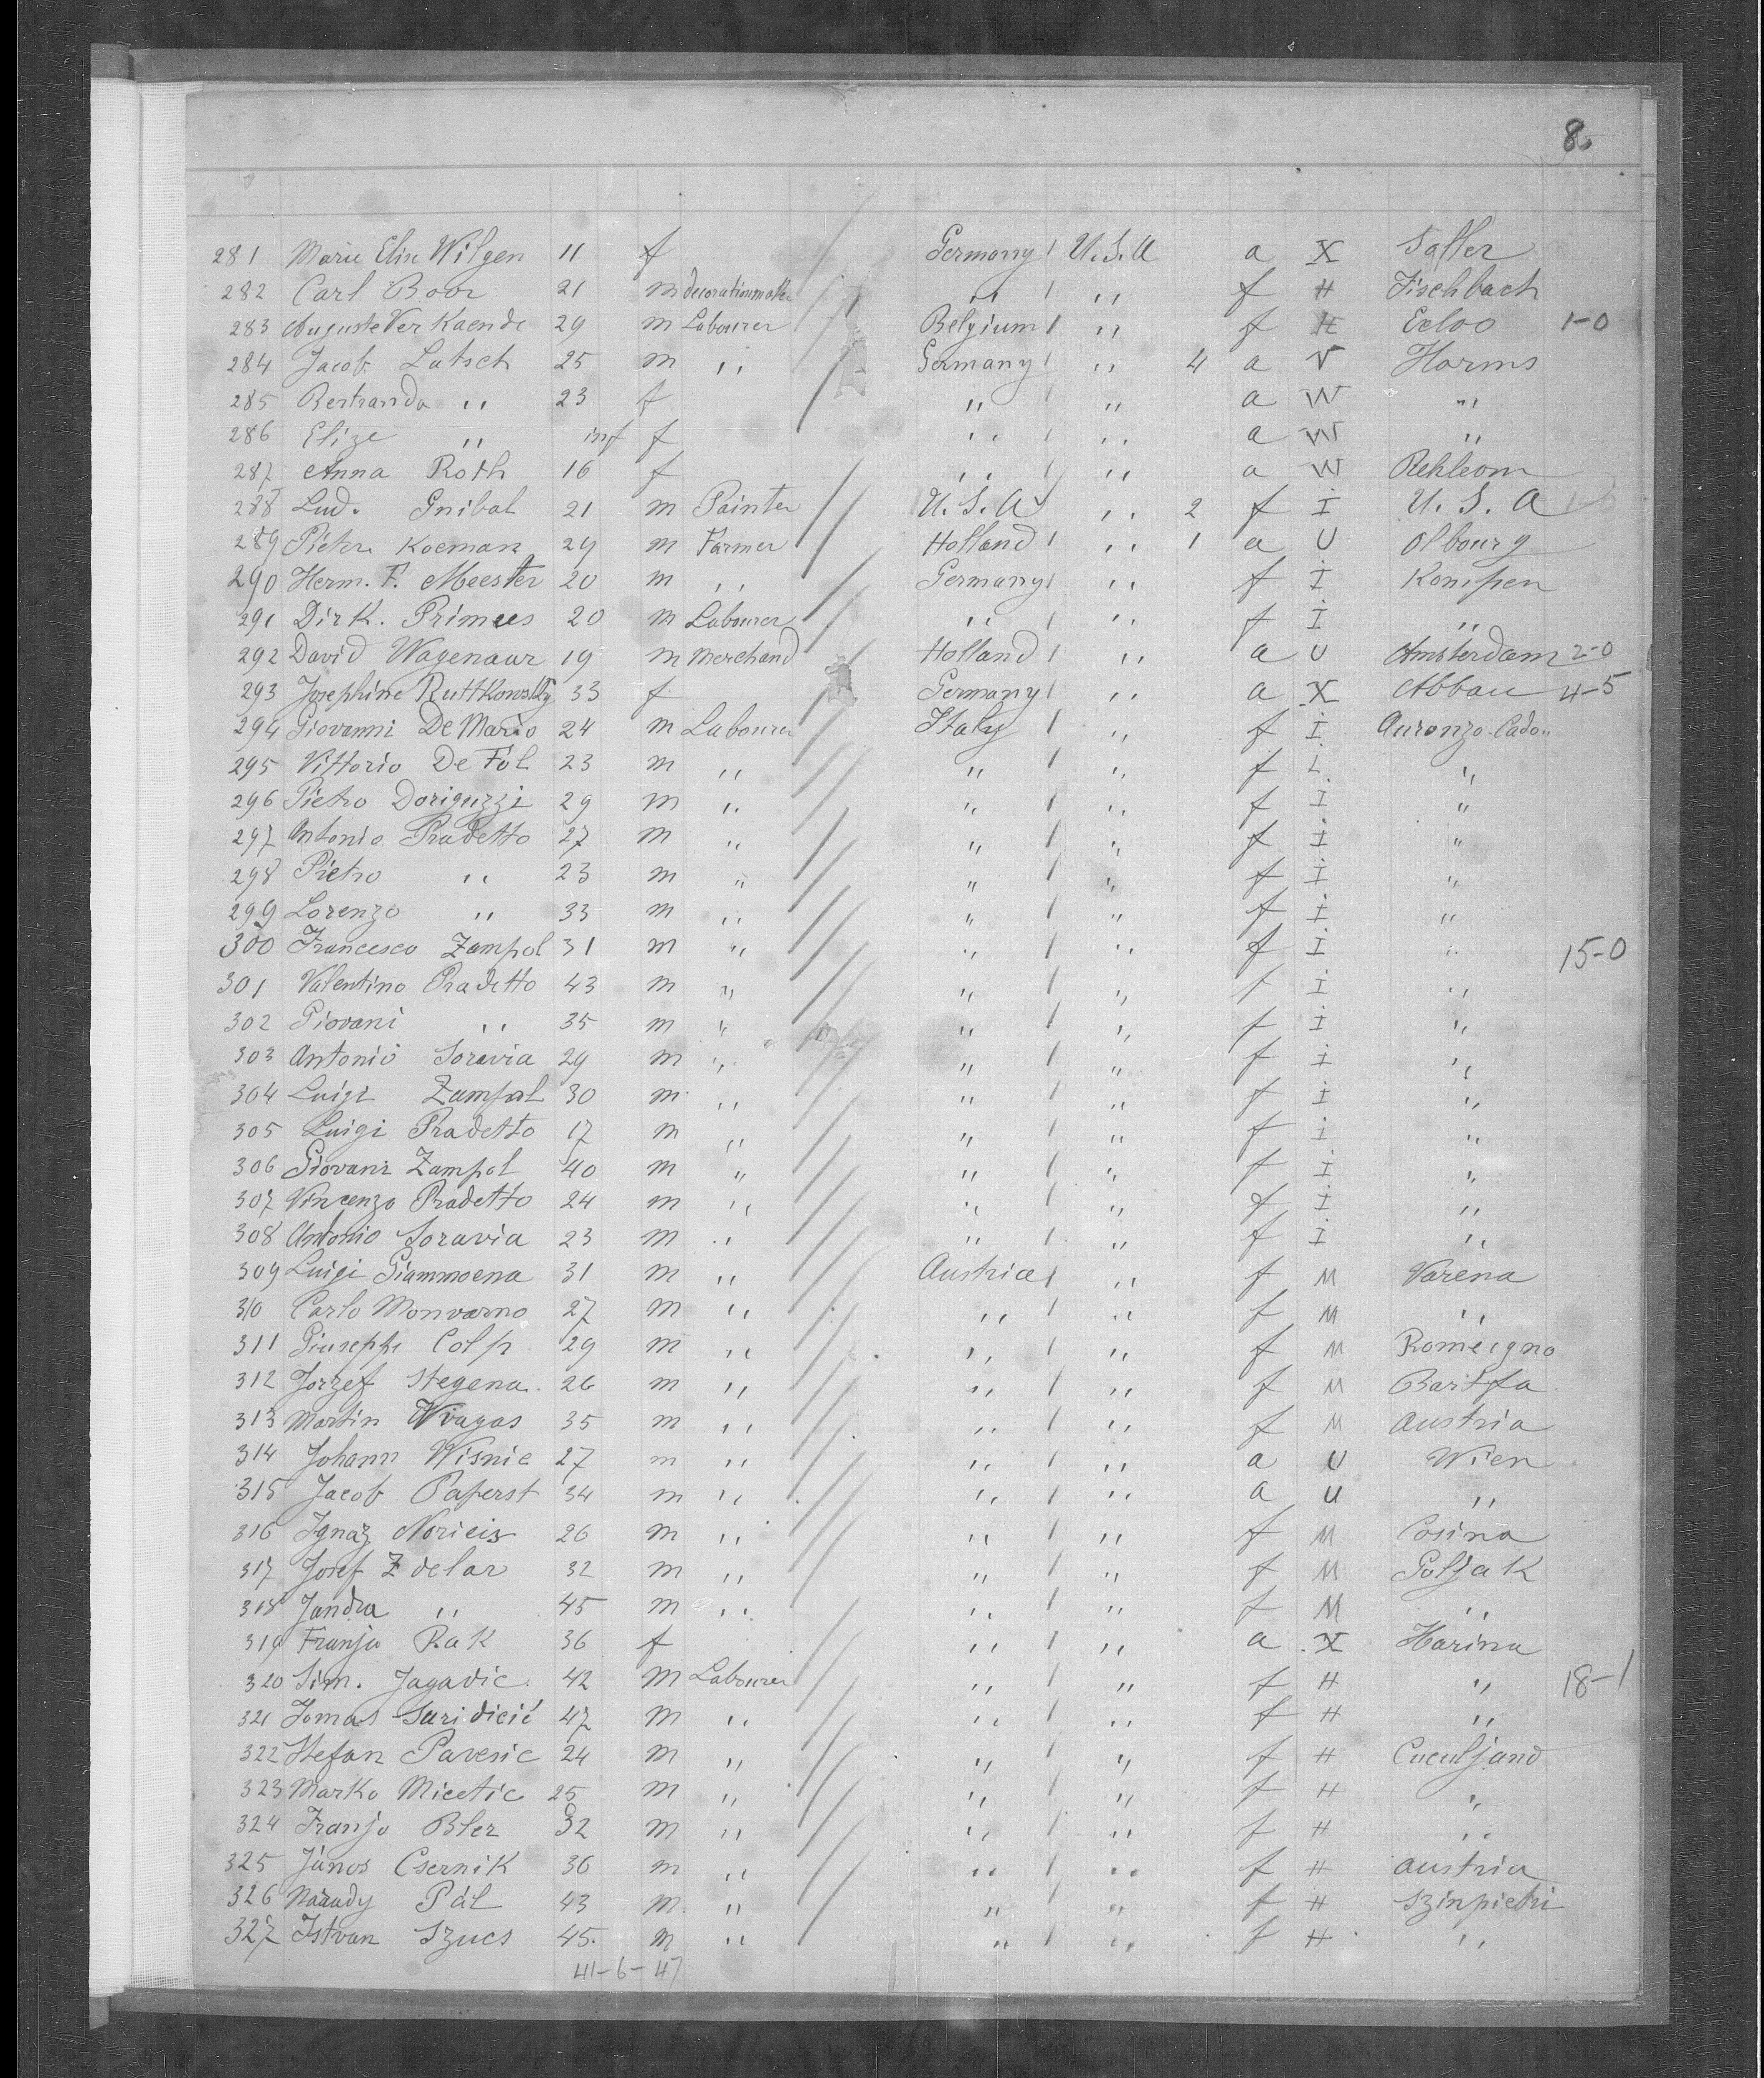 8.
281 Marie Elise Wilgen 11 f Germany 1 U.S.A a X Salter
282 Carl Boor 21 m decorationmaker ,, 1 ,, f H Fischbach
283 Auguste Ver Kaende 29 m Labourer Belgium 1 ,, f H Ecloo 1-0
284 Jacob Latsch 25 m ,, Germany 1 ,, 4 a V Horms
285 Bertranda ,, 23 f ,, ,, a W ,,
286 Elize ,, inf f ,, 1 ,, a W ,,
287 Anna Roth 16 f ,, 1 ,, a W Rehleom
288 Lud. Gnibal 21 m Painter U.S.A ,, 2 f I U.S.A
289 Pieter Koeman 29 m Farmer Holland 1 ,, 1 a U Olbourg
290 Herm. F. Meester 20 m ,, Germany 1 ,, f I Kompen
291 Dirk. Primus 20 m Labourer ,, 1 ,, f I ,,
292 David Wagenaar 19 m Merchand Holland 1 ,, a U Amsterdam 2-0
293 Josephine Ruttkowsky 33 f Germany 1 ,, a X Abbau 4-5
294 Giovanni De Mario 24 m Labourer Italy 1 ,, f I Auronzo-Cado..
295 Vittorio De Fol 23 m ,, ,, 1 ,, f I ,,
296 Pietro Doriguzzi 29 m ,, ,, 1 ,, f I ,,
297 Antonio Pradetto 27 m ,, ,, 1 ,, f I ,,
298 Pietro ,, 23 m ,, ,, 1 ,, f I ,,
299 Lorenzo ,, 33 m ,, ,, 1 ,, f I ,,
300 Francesco Zampol 31 m ,, ,, 1 ,, f I ,, 15-0
301 Valentino Pradetto 43 m ,, ,, 1 ,, f I ,,
302 Giovani ,, 35 m ,, ,, 1 ,, f I ,,
303 Antonio Soravia 29 m ,, ,, 1 ,, f I ,,
304 Luigi Zampol 30 m ,, ,, 1 ,, f I ,,
305 Luigi Pradetto 17 m ,, ,, 1 ,, f I ,,
306 Giovani Zampol 40 m ,, ,, 1 ,, f I ,,
307 Vincenzo Pradetto 24 m ,, ,, 1 ,, f I ,,
308 Antonio Soravia 23 m ,, ,, 1 ,, f I ,,
309 Luigi Giammoena 31 m ,, Austria 1 ,, f M Varena
310 Carlo Monvarno 27 m ,, ,, 1 ,, f M ,,
311 Giuseppe Colp 29 m ,, ,, 1 ,, f M Romecgno
312 Jorzef Stegena 26 m ,, ,, 1 ,, f M Bartfa
313 Martin Wragas 35 m ,, ,, 1 ,, f M Austria
314 Johann Wisnie 27 m ,, ,, 1 ,, a U Wien
315 Jacob Paperst 34 m ,, ,, 1 ,, a U ,,
316 Ignaz Noricis 26 m ,, ,, 1 ,, f M Cosina
317 Josef Zdelar 32 m ,, ,, 1 ,, f M Poljak
318 Jandra ,, 45 m ,, ,, 1 ,, f M ,,
319 Franja Rak 36 f ,, 1 ,, a X Harina
320 Sim. Jagadic 42 m Labourer ,, 1 ,, f H ,, 18-1
321 Tomas Suridicić 47 m ,, ,, 1 ,, f H ,,
322 Stefan Pavesic 24 m ,, ,, 1 ,, f H Cuculjand
323 Marko Micetic 25 m ,, ,, 1 ,, f H ,,
324 Franjo Bler 32 m ,, ,, 1 ,, f H ,,
325 János Csernik 36 m ,, ,, 1 ,, f H Austria
326 Pál 43 m ,, ,, ,, f H Szinpietri
327 Istvan Szucs 45 m ,, ,, 1 ,, f H ,,
41-6-47